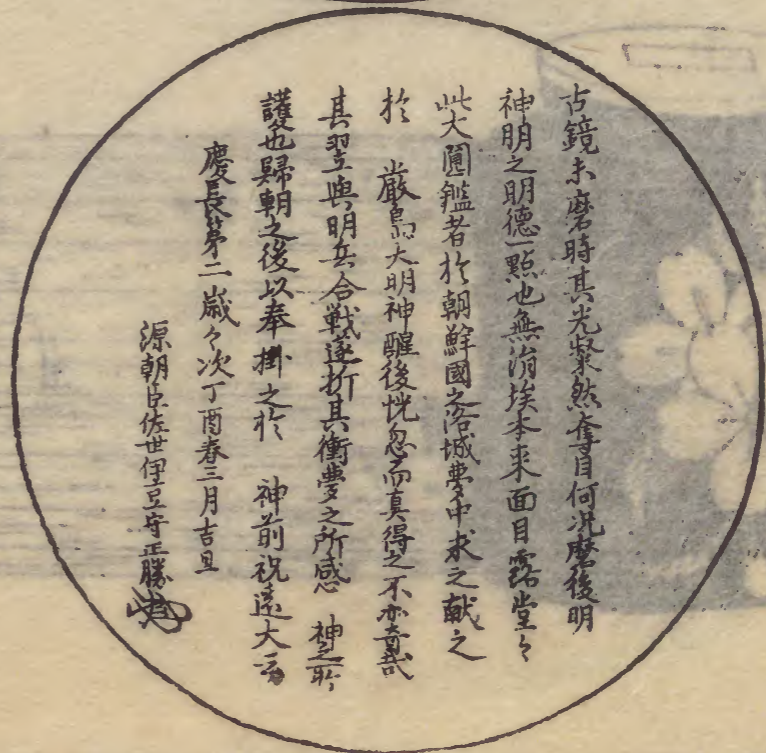 古鏡未磨時其光粲然奪目何況磨後明
神明之明德一點也無涓埃本来面目露堂々
此大圓鑑者於朝鮮國之洛城夢中求之献之
於 嚴島大明神醒後恍忽而真得之不亦奇哉
其翌與明兵合戦遂折其衝夢之所感 神之所
護也歸朝之後以奉掛之於 神前祝遠大云
慶長第二歳々次丁酉春三月吉旦
源朝臣佐世伊豆守正勝